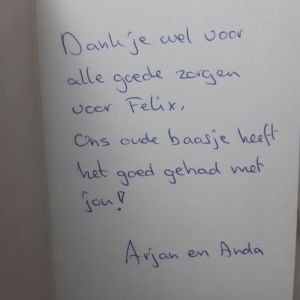 Dank je wel voor
alle goede zorgen
voor Felix.
Ons oude baasje heeft
het goed gehad met
jou!
Arjan en Anda